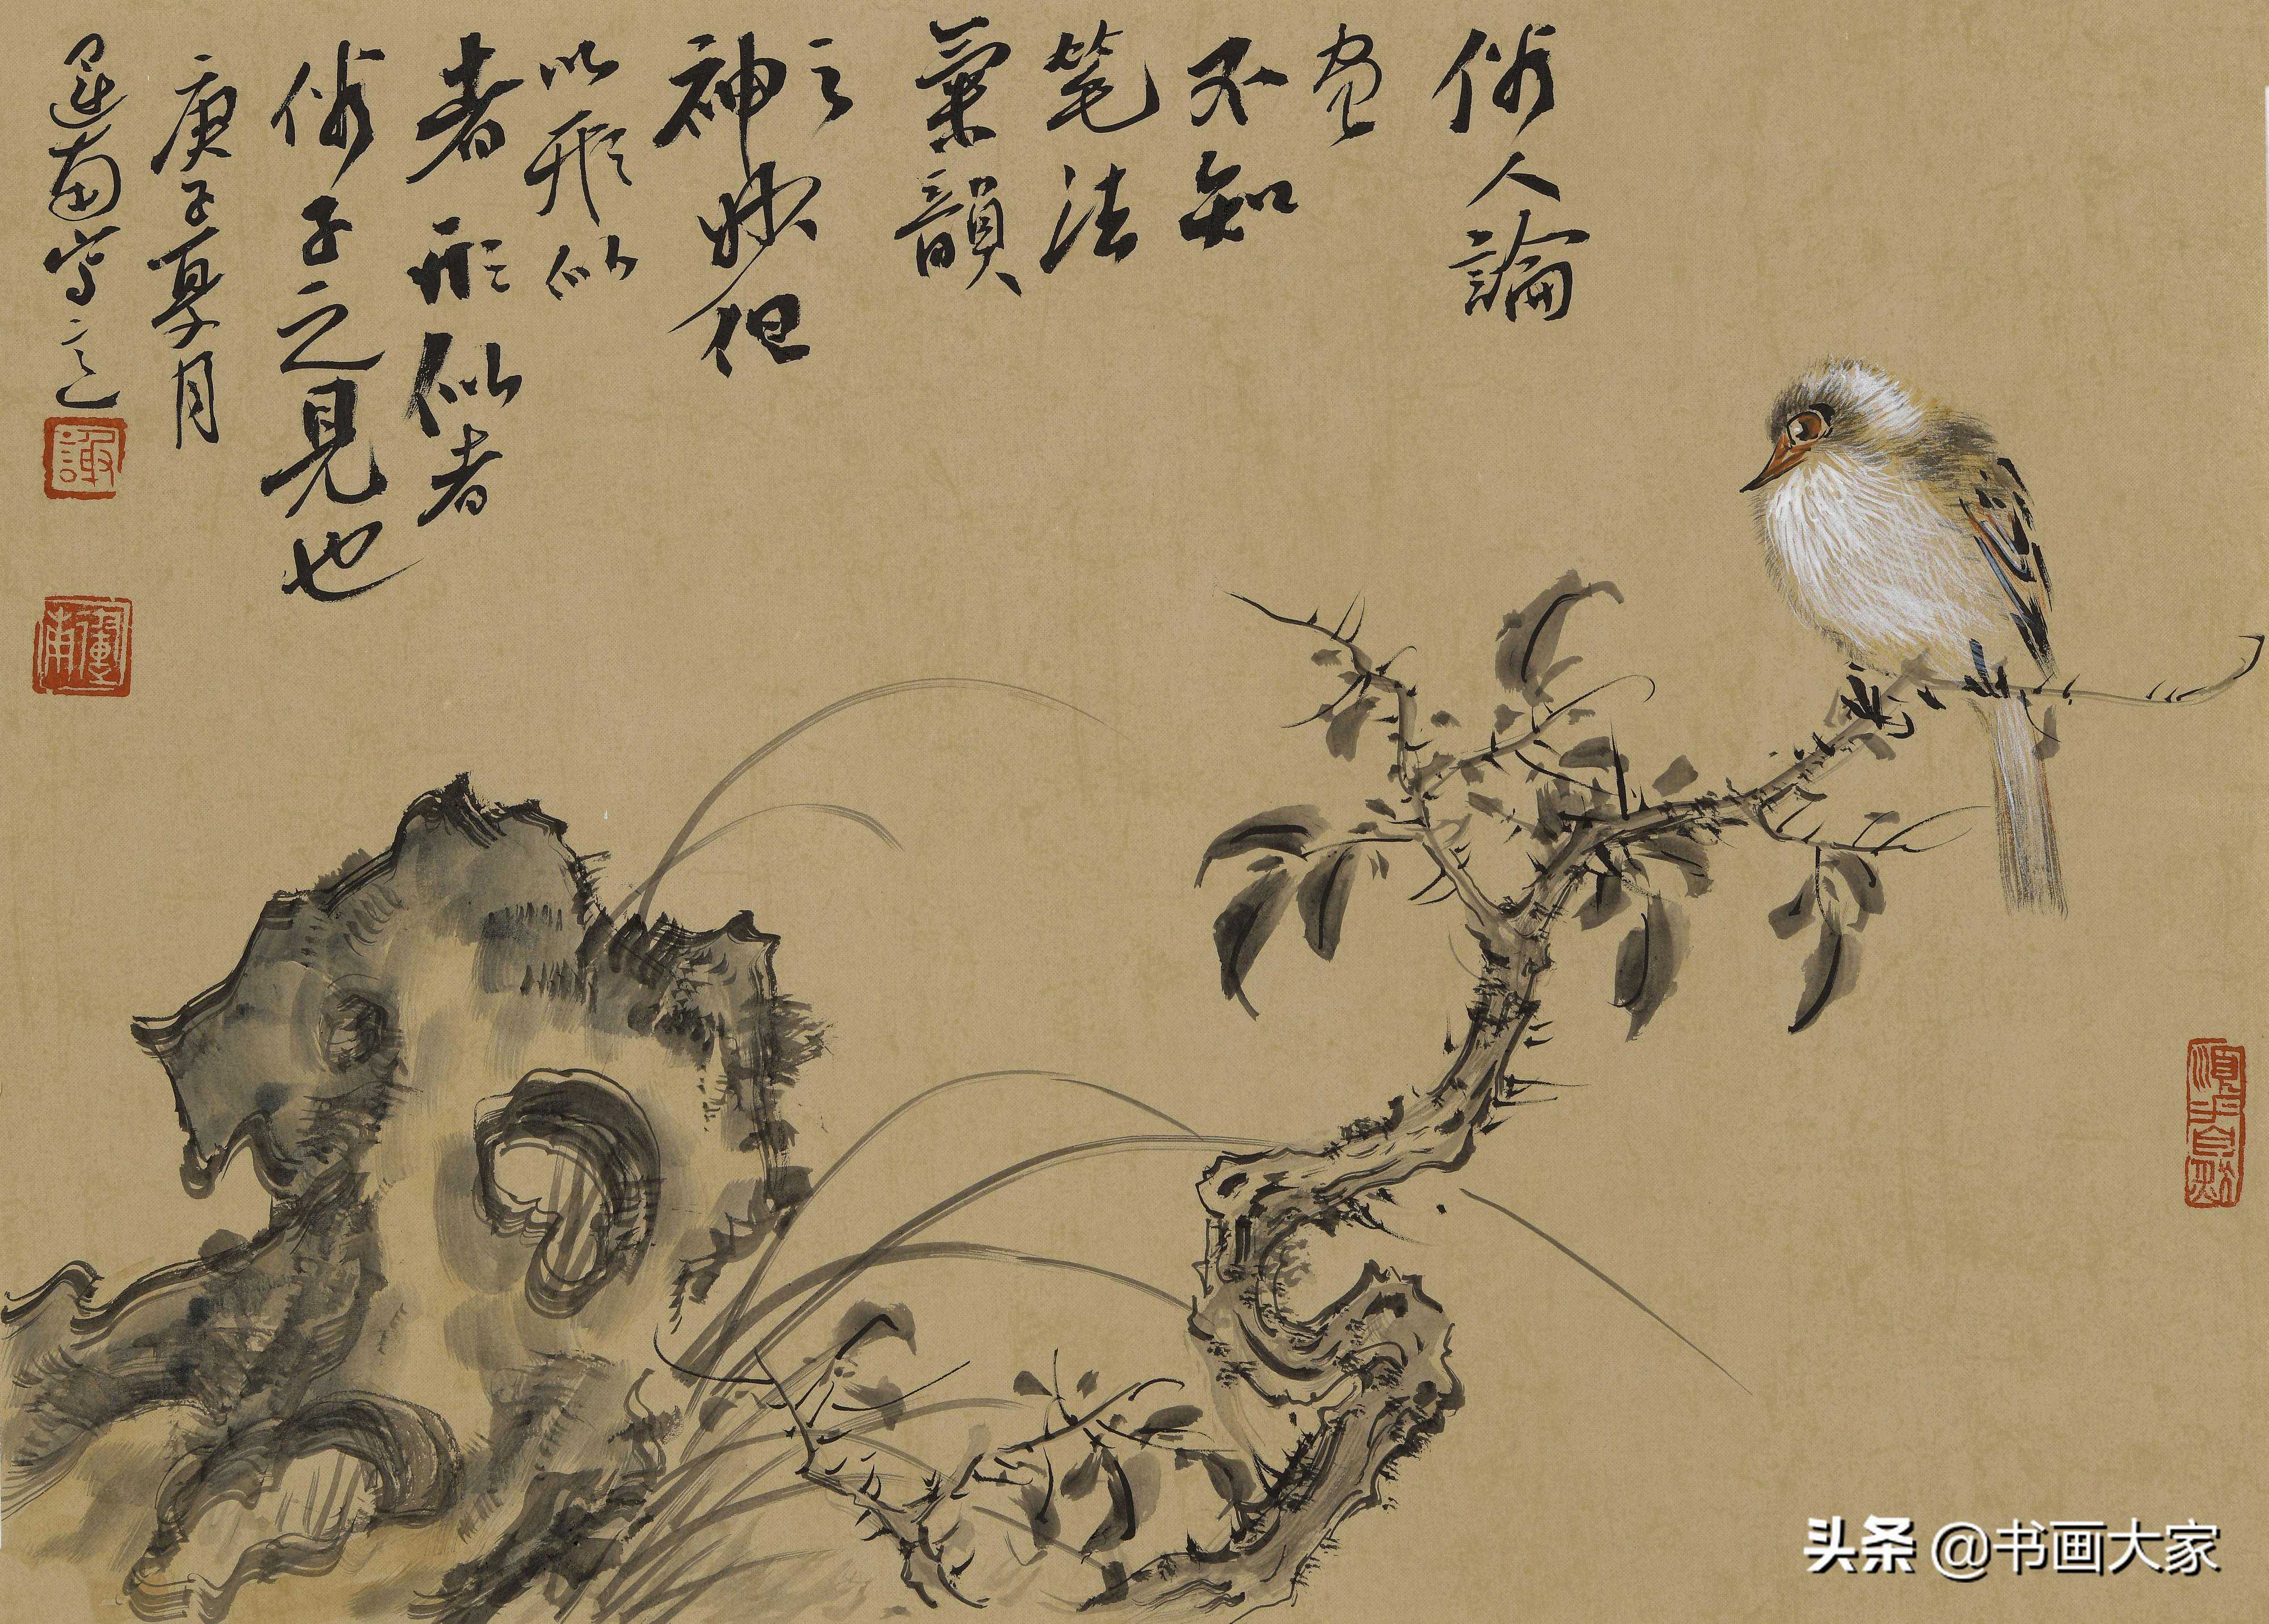 俗人論
畫
不知
笔法
氣韻
之
神妙但
以形似
者形似者
俗子之見也
庚子夏月
運甫寫之
头条 @书画大家